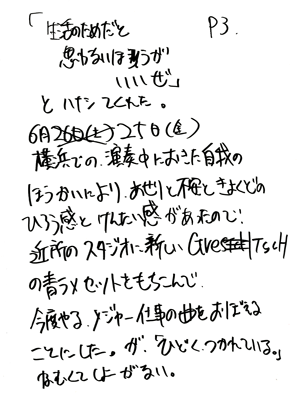 「生活のためだと P3.
思わないほうが
いいぜ」
とハナシてくれた。
6月26日(土)25日(金)
横浜での、演奏中におきた自我の
ほうかいにより、あせりと不安ときょくどの
ひろう感とけんたい感があったので、
近所のスタジオに新しいGRETSCH
の青ラメセットをもちこんで、
今度やる、メジャー仕事の曲をおぼえる
ことにした。が、「ひどくつかれている。」
ねむくてしょーがない。